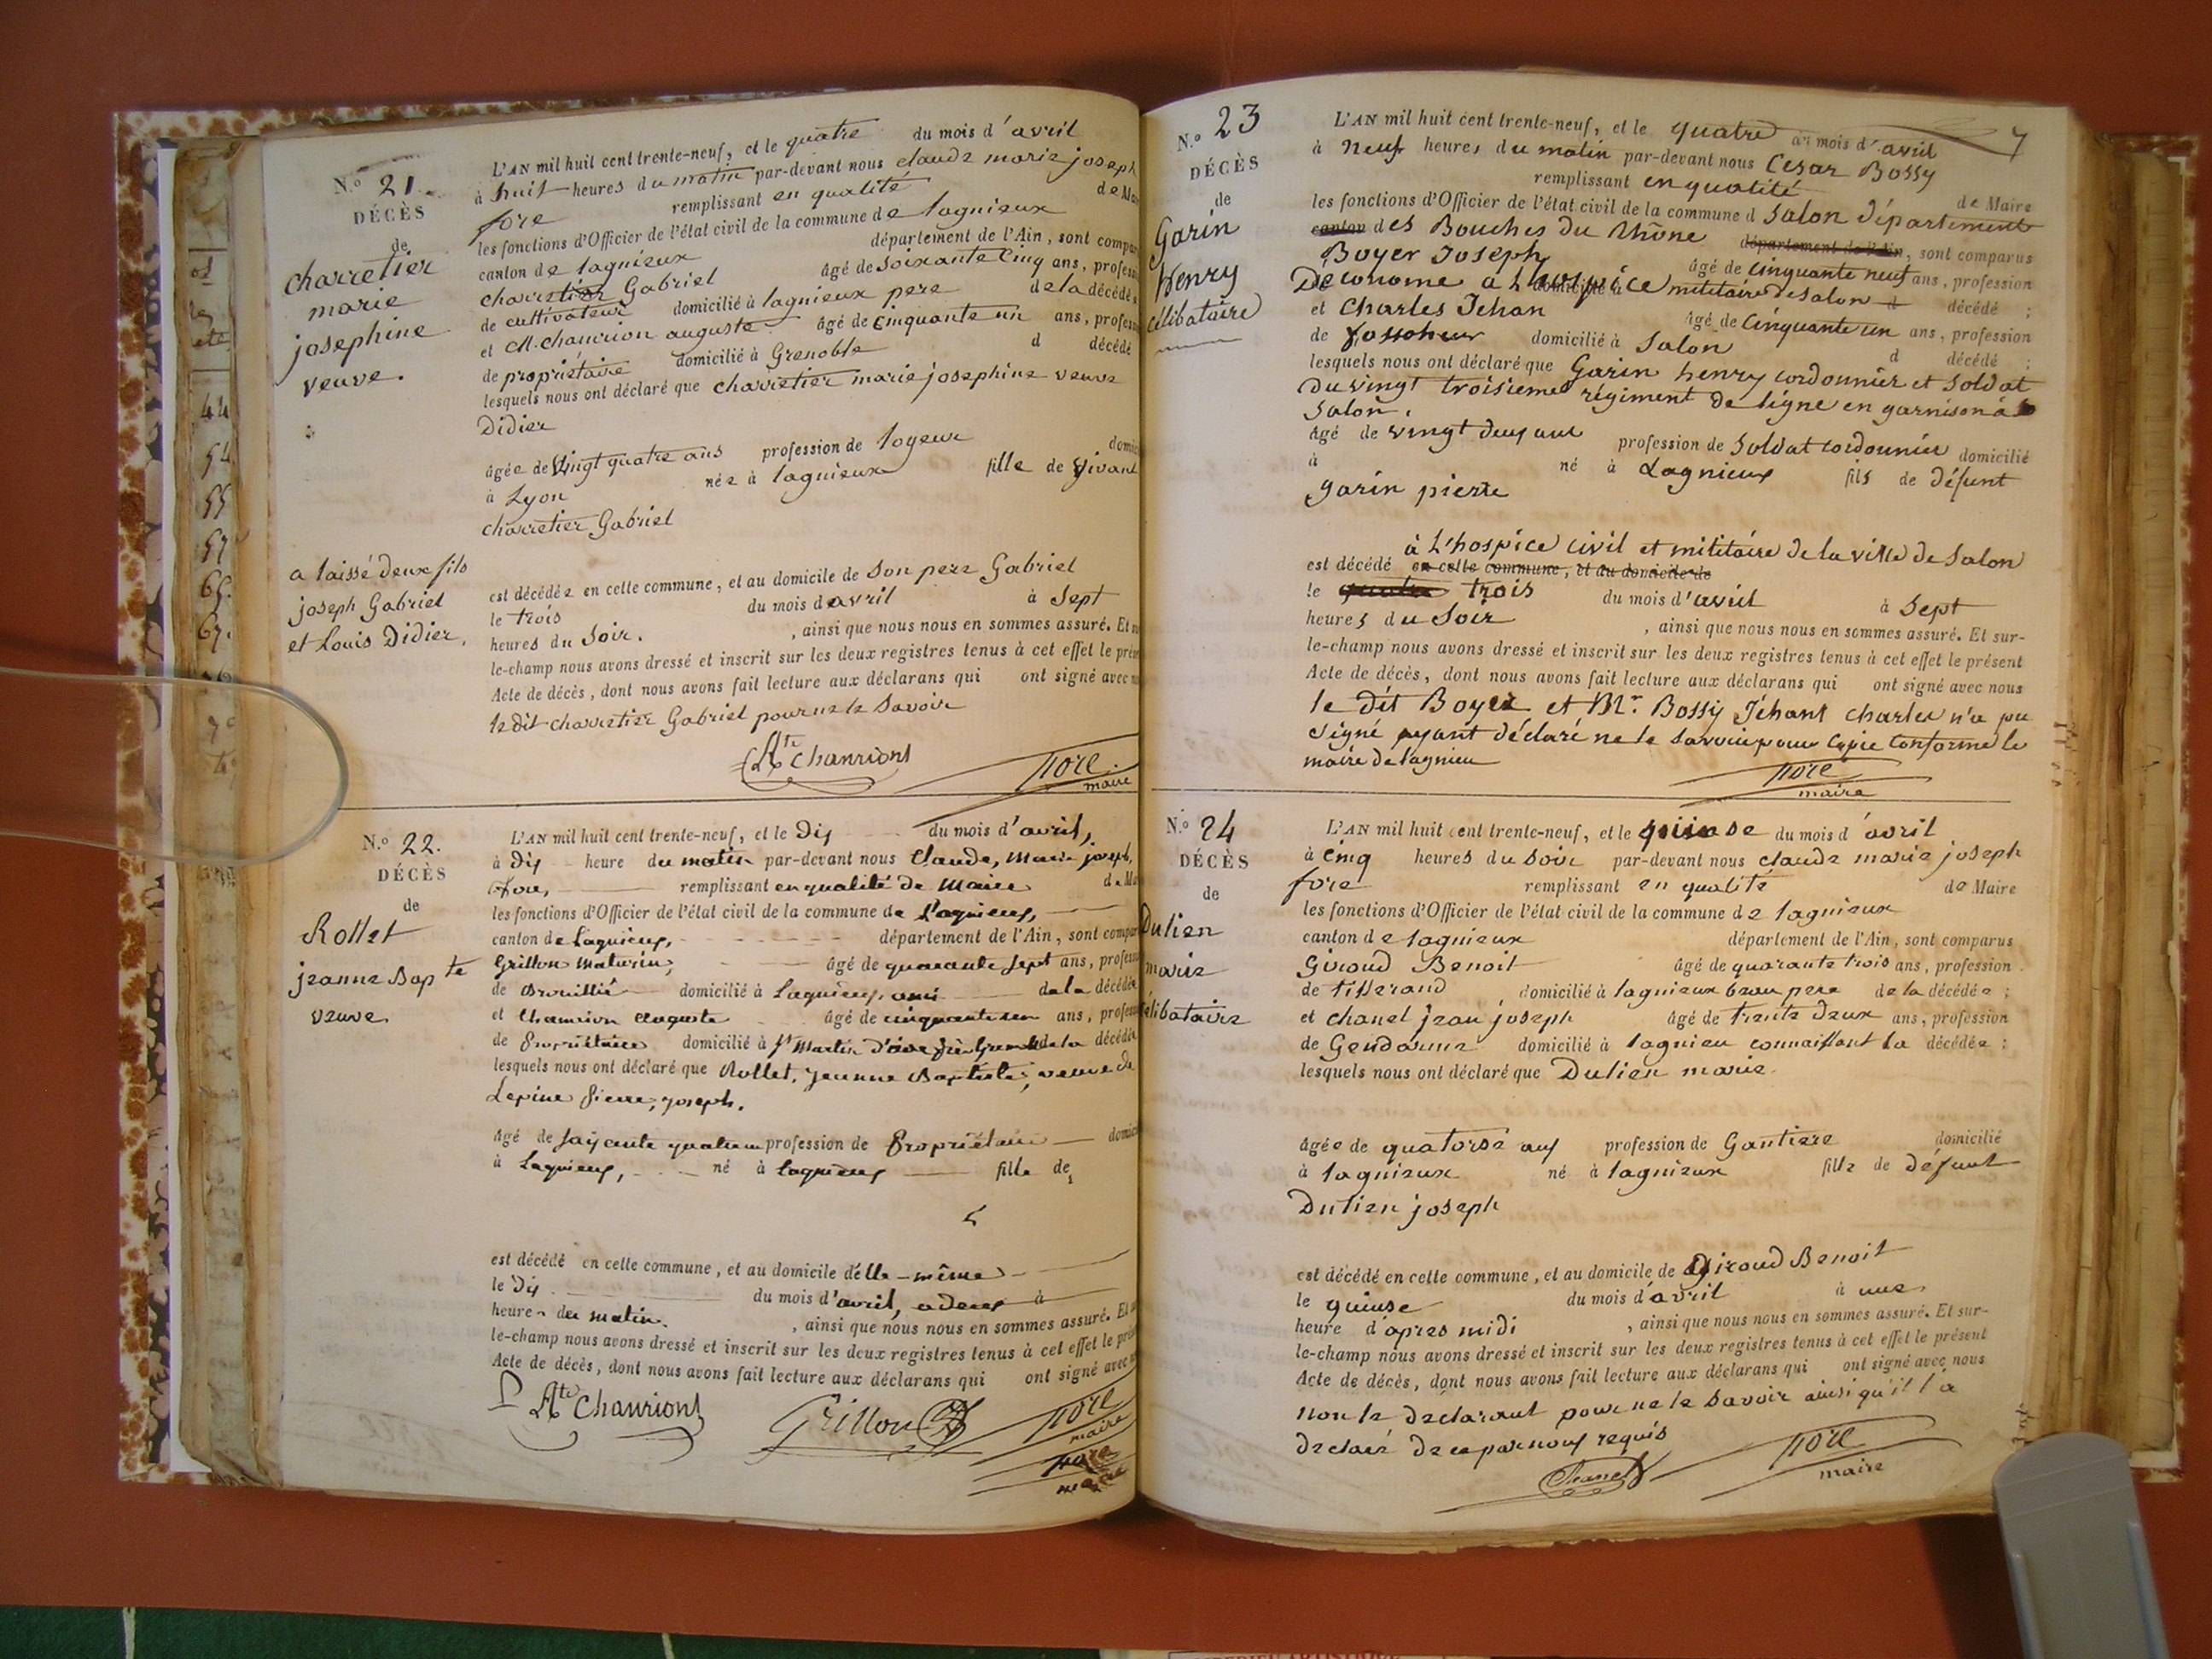 N.o 21.
DÉCÈS
de
charretier
marie
josephine
veuve.
a laissé deux fils
joseph Gabriel
et Louis Didier.
L'AN mil huit cent trente-neuf, et le quatre du mois d'avril
à huit heures du matin par-devant nous claude marie joseph
fore remplissant en qualité de Ma
les fonctions d'Officier de l'état civil de la commune de lagnieux
canton de lagnieux département de l'Ain, sont compar
charretier Gabriel âgé de soixante cinq ans, profess
de cultivateur domicilié à lagnieux pere de la décédée
et M. chanrion auguste âgé de cinquante un ans, profess
de propriétaire domicilié à Grenoble d décédé
lesquels nous ont déclaré que charretier marie josephine veuve
Didier
âgée de vingt quatre ans profession de domic
à Lyon née à lagnieux fille de vivant
charretier Gabriel
est décédée en cette commune, et au domicile de son pere Gabriel
le trois du mois d avril à sept
heures du soir. , ainsi que nous nous en sommes assuré. Et
le-champ nous avons dressé et inscrit sur les deux registres tenus à cet effet le prés
Acte de décès, dont nous avons fait lecture aux déclarans qui ont signé avec
le dit charretier Gabriel pour ne le savoir
Ate Chanriont fore.
maire
N.o 22.
DÉCÈS
de
Rollet
jeanne Bapte
veuve
L'AN mil huit cent trente-neuf, et le dix du mois d'avril,
à dix heure du matin par-devant nous Claude, Marie joseph,
fore, remplissant en qualité de Maire de Ma
les fonctions d'Officier de l'état civil de la commune de Lagnieux,
canton de Lagnieux, département de l'Ain, sont compar
Grillon Maturin, âgé de quarante sept ans, profess
de domicilié à Lagnieux, ami de la décédée
et Chanrion auguste âgé de cinquante un ans, profess
de Propriétaire domicilié à St Martin de la décédée
lesquels nous ont déclaré que Rollet, jeanne Baptiste, veuve de
Lepine Pierre, joseph.
âgé de soixante quatre profession de Propriétaire domic
à Lagnieux, né à Lagnieux fille de,
est décédé en cette commune, et au domicile d'elle-même
le dix du mois d'avril, a deux à
heures du matin. , ainsi que nous nous en sommes assuré. Et
le-champ nous avons dressé et inscrit sur les deux registres tenus à cet effet le pré
Acte de décès, dont nous avons fait lecture aux déclarans qui ont signé avec
Ate Chanriont Grillon fore
maire
fore
maire
N.o 23
DÉCÈS
de
Garin
Henry
célibataire
7
L'AN mil huit cent trente-neuf, et le quatre du mois d'avril
à neuf heures du matin par-devant nous Cesar Bossy
remplissant en qualité de Maire
les fonctions d'Officier de l'état civil de la commune d Salon département
canton des Bouches du Rhône département de l'Ain, sont comparus
Boyer Joseph âgé de cinquante neuf ans, profession
D'econome a L'hospice militaire de Salon d décédé ;
et Charles Jehan âgé de cinquante un ans, profession
de fossoheur domicilié à Salon d décédé :
lesquels nous ont déclaré que Garin henry cordonnier et soldat
du vingt troisieme régiment de ligne en garnison à
Salon.
âgé de vingt deux ans profession de soldat cordonnier domicilié
à né à Lagnieux fils de défunt
garin pierre
à L'hospice civil et militaire de la ville de Salon
est décédé en cette commune, et au domicile de
le quatre trois du mois d'avril à sept
heures du soir , ainsi que nous nous en sommes assuré. Et sur-
le-champ nous avons dressé et inscrit sur les deux registres tenus à cet effet le présent
Acte de décès, dont nous avons fait lecture aux déclarans qui ont signé avec nous
le dit Boyer et Mr. Bossy Jéhant charles n'a pu
signé ayant déclaré ne le savoir pour copie conforme le
maire de lagnieu
fore
maire
N.o 24
DÉCÈS
de
Dulien
marie
célibataire
L'AN mil huit cent trente-neuf, et le quinse du mois d'avril
à cinq heures du soir par-devant nous claude marie joseph
fore remplissant en qualité de Maire
les fonctions d'Officier de l'état civil de la commune de lagnieux
canton de lagnieux département de l'Ain, sont comparus
Giroud Benoit âgé de quarante trois ans, profession
de tisserand domicilié à lagnieux beau pere de la décédée ;
et chanel jean joseph âgé de trente deux ans, profession
de Gendarme domicilié à lagnieu connaissant la décédée :
lesquels nous ont déclaré que Dulien marie
âgée de quatorse ans profession de Gantiere domicilié
à lagnieux né à lagnieux fille de défunt
Dulien joseph
est décédé en cette commune, et au domicile de Giroud Benoit
le quinse du mois d'avril à une
heure d'apres midi , ainsi que nous nous en sommes assuré. Et sur-
le-champ nous avons dressé et inscrit sur les deux registres tenus à cet effet le présent
Acte de décès, dont nous avons fait lecture aux déclarans qui ont signé avec nous
non le déclarant pour ne le savoir ainsi qu'il l'a
declaré de ce par nous requis
Chanel fore
maire